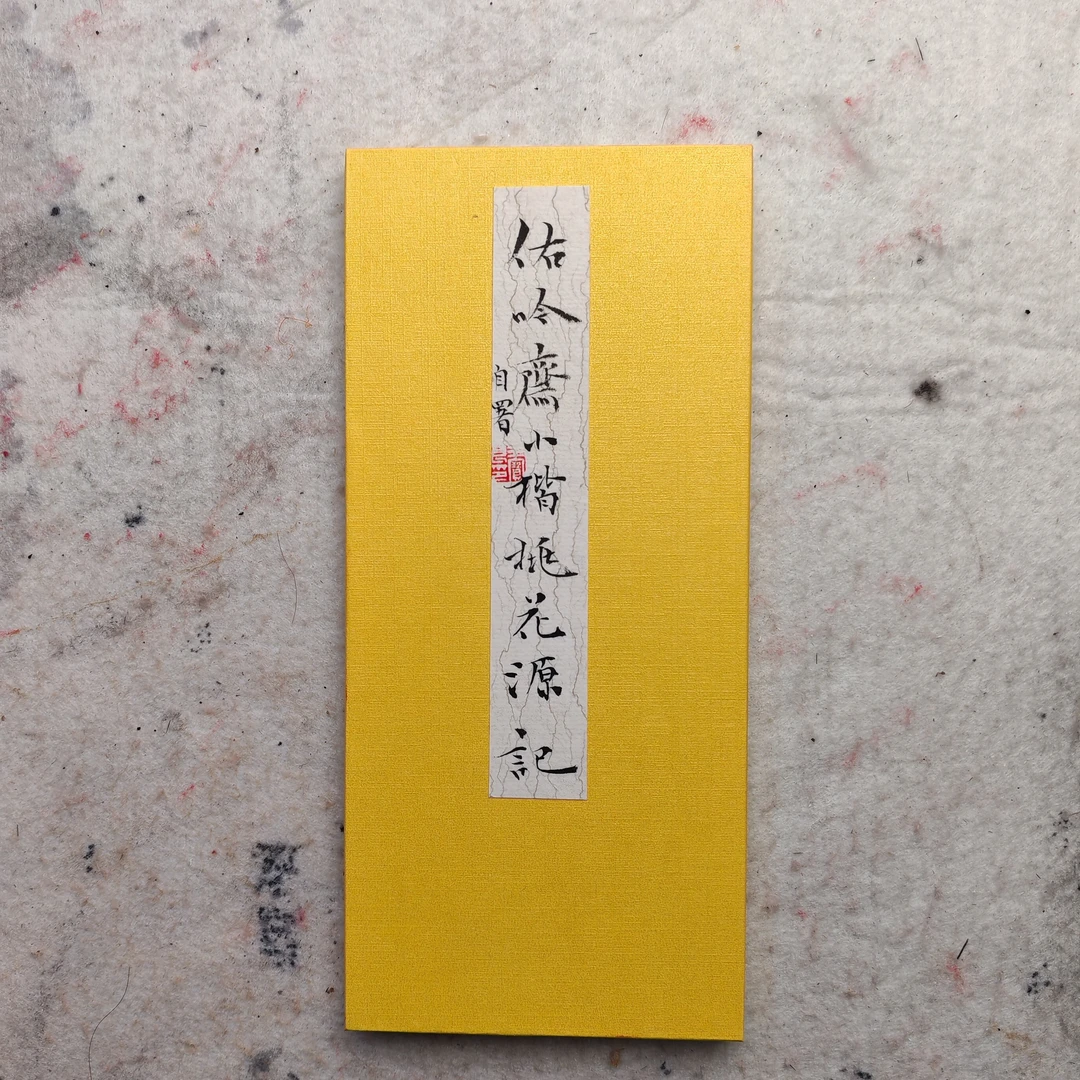 佑吟齋小楷桃花源記
自署